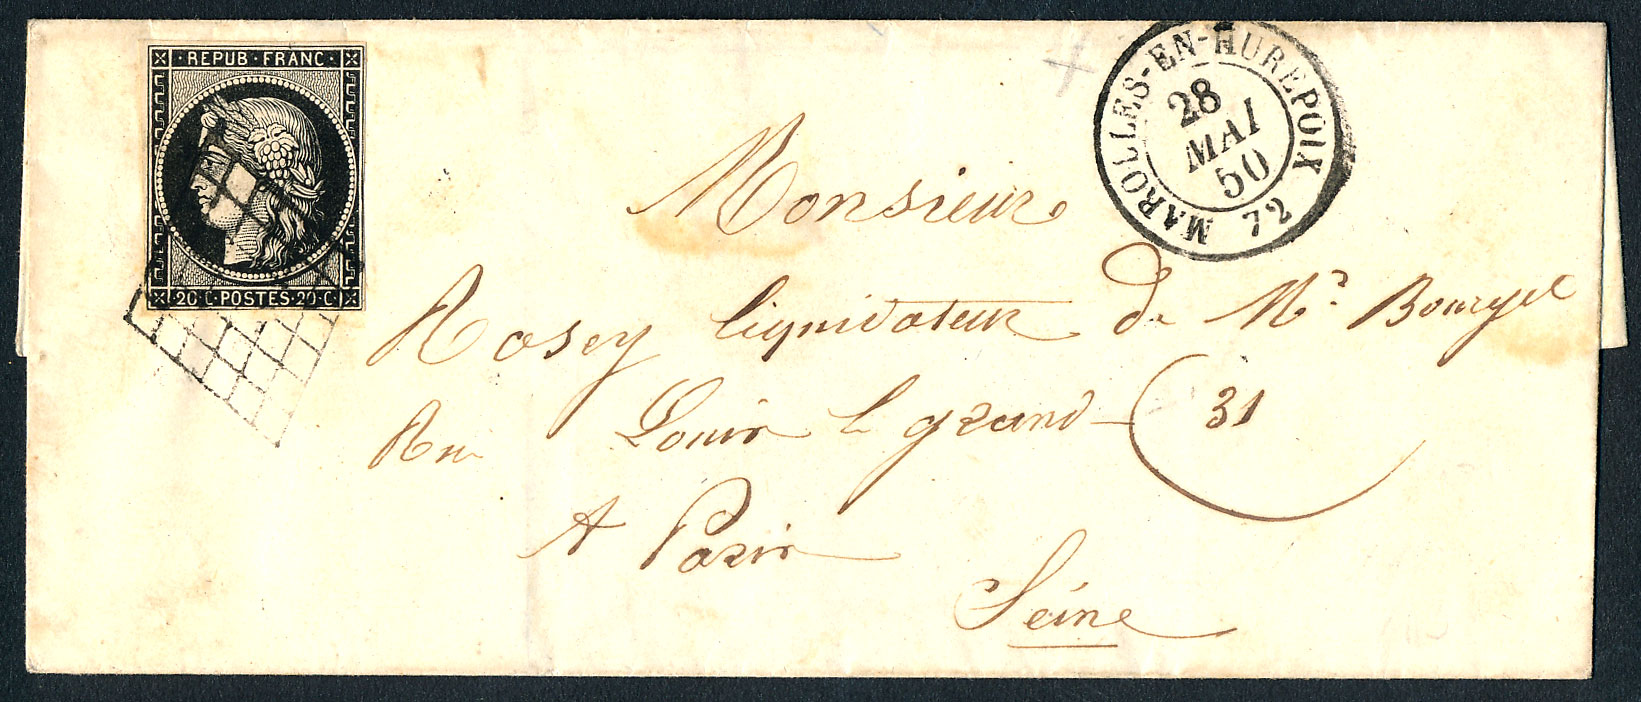 REPUB·FRANC·
20·C·POSTES·20·C
MAROLLES-EN-HUREPOIX
28
MAI
50
72
Monsieur
Rosey liquidateur de Mr Bourget
Rue Louis le grand 31
A Paris
Seine